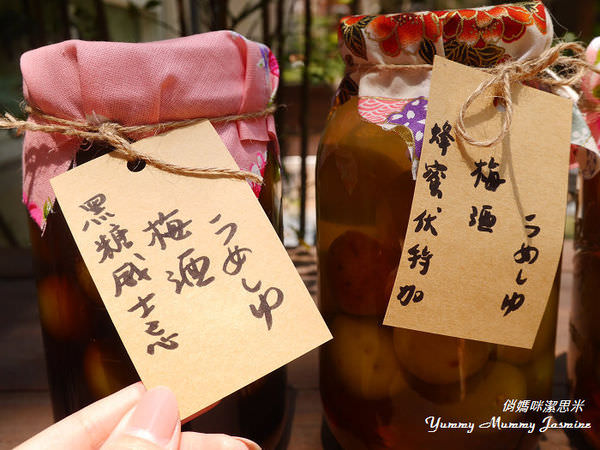 うめしゅ
梅酒
黑糖威士忌
うめしゅ
梅酒
蜂蜜伏特加
俏媽咪潔思米
Yummy Mummy Jasmine